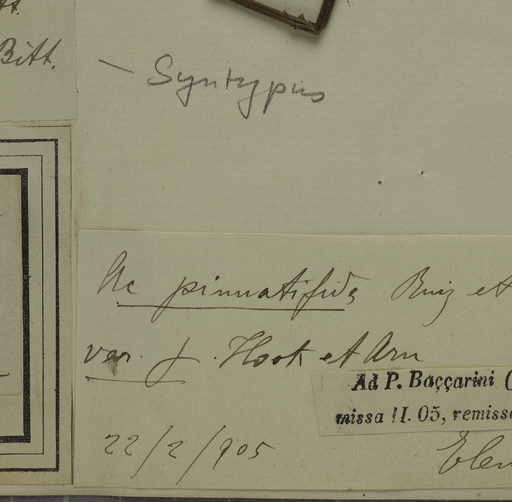 Bitt.
— Syntypus
Ac pinnatifida Ruiz et
var. γ. Hook et Arn
Ad P. Baççarini (
missa !I. 05, remissa
22/2/905